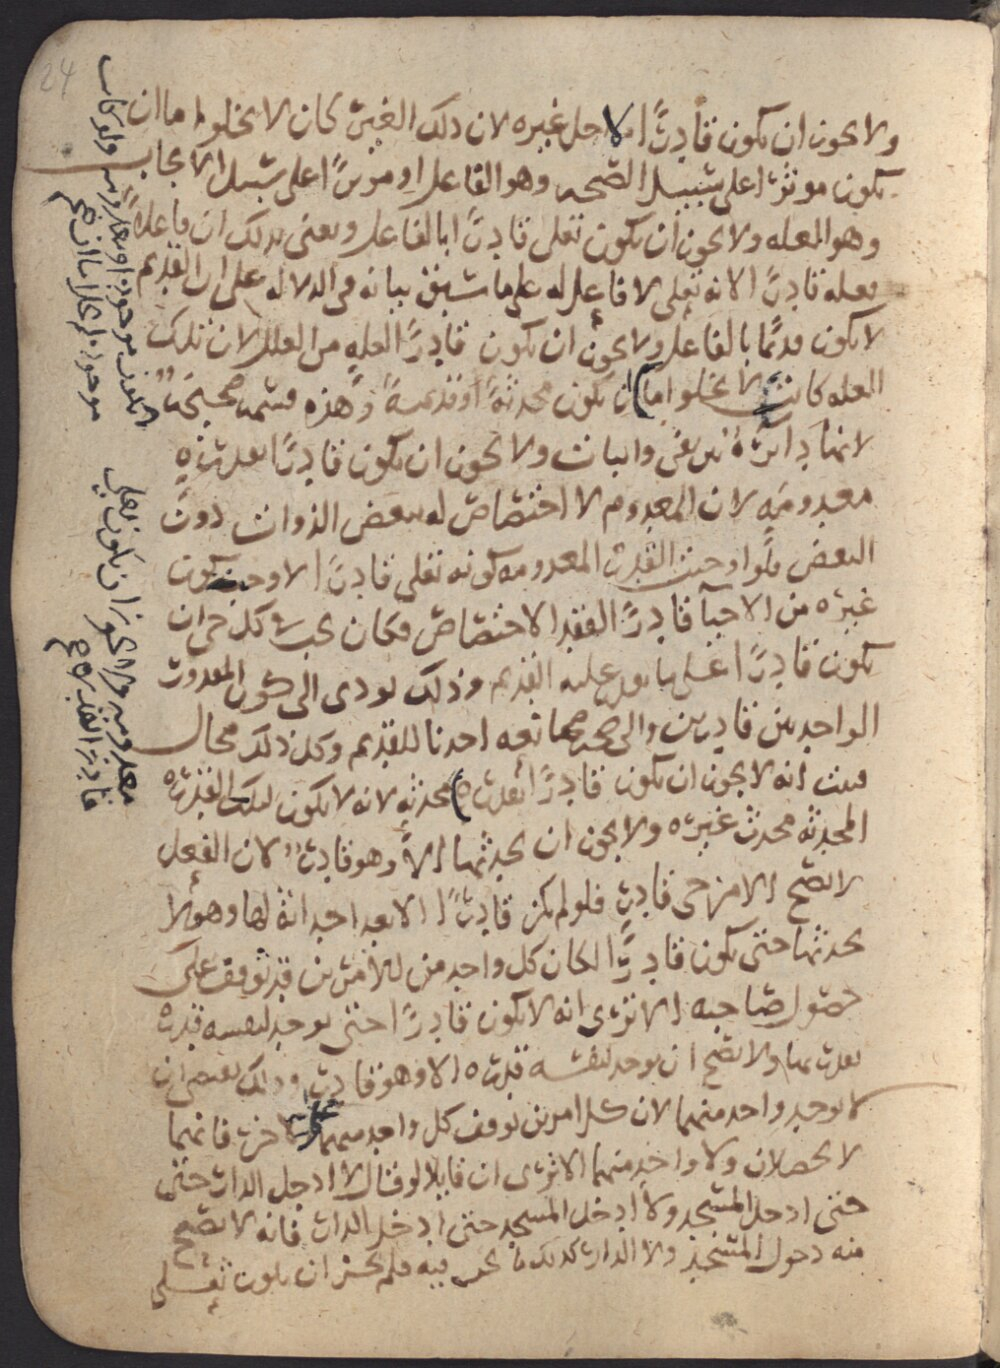 ولا يجوز ان يكون قادرًا لا لاجل غيره لان ذلك الغير كان لا يخلو اما ان
يكون موثرًا على سبيل الصحه وهو الفاعل او موثرًا على سبيل الايجاب
وهو العله ولا يجوز ان يكون تعلى قادرًا بالفاعل ونعنى بذلك ان فاعلًا
جعله قادرًا لانه تعلى لا فاعل له على ما سيتبين بيانه فى الدلاله على ان القديم
لا يكون قديمًا بالفاعل ولا يجوز ان يكون قادرًا لعلهٍ من العلل لان تلك
العله كانت لا يخلوا اما ان يكون محدثةً او قديمةً وهذه قسمه صحيحة
لانها دائرة بين نفى واثبات ولا يجوز ان يكون قادرًا بقدرةٍ
معدومه لان المعدوم لا اختصاص له ببعض الذوات دون
البعض فلو اوجبت القدره المعدومه كونه تعلى قادرًا لاوجب كون
غيره من الاحيآ قادرًا لفقد الاختصاص فكان يجب فى كل حى ان
يكون قادرًا على ما يقدر عليه القديم وذلك يودى الى كون المقدور
الواحد بين قادرين والى صحه ممانعه احدنا للقديم وكل ذلك محال
فثبت انه لا يجوز ان يكون قادرًا بقدرةٍ محدثه لانه لا يكون لتلك القدره
المحدثه محدث غيره ولا يجوز ان يحدثها الا وهو قادر لان الفعل
لا يصح الا من حى قادر فلو لم يكن قادرًا الا بعد احداثه لها وهو لا
يحدثها حتى يكون قادرًا لكان كل واحد من الامرين قد توقف على
حصول صاحبه الا ترى انه لا يكون قادرًا حتى يوجد لنفسه قدره
يقدر بها ولا يصح ان يوجد لنفسه قدره الا وهو قادر وذلك يقتضى ان
لا يوجد واحد منهما لان كل امرين توقف كل واحد منهما على الاخر فانهما
لا يحصلان ولا واحد منهما الا ترى ان قايلا لو قال لا ادخل الدار حتى
حتى ادخل المسجد ولا ادخل المسجد حتى ادخل الدار فانه لا يصح
منه دخول المسجد ولا الدار كذلك ما نحن فيه فلم يجز ان يكون تعلى
او معدومه ولو كان
يكون موجوده
معدومه ولا يجوز ان يكون تعلى
قادرًا لفقد
24